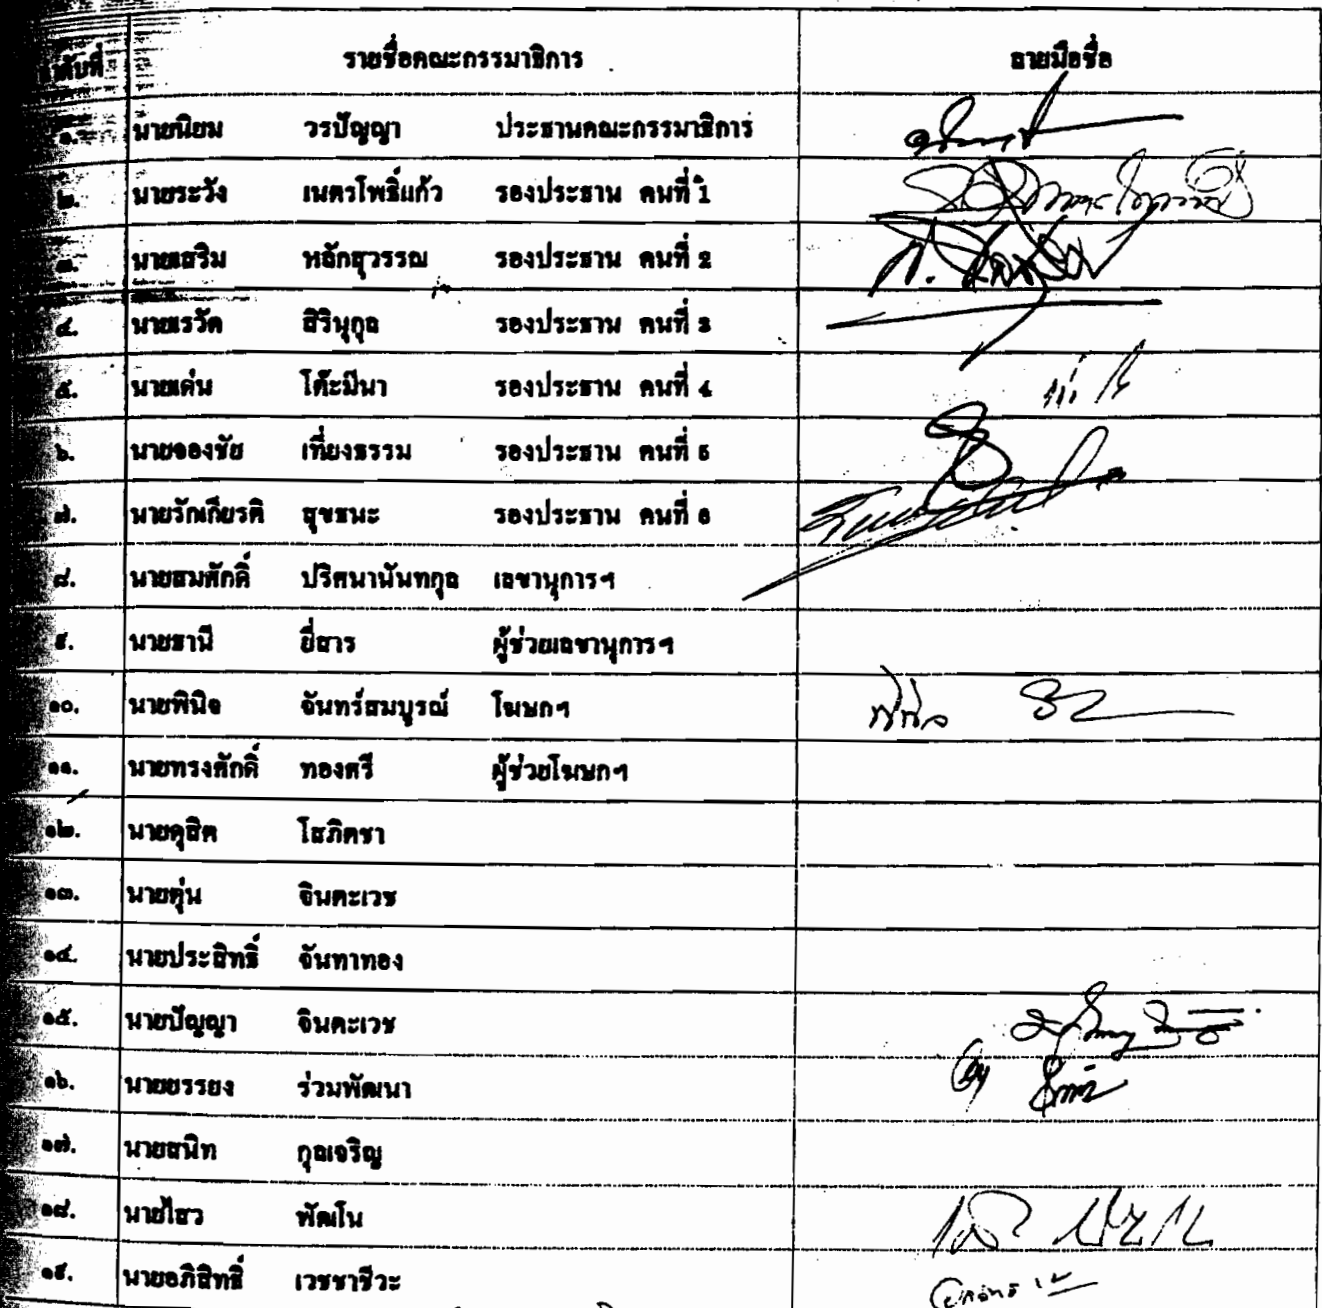 ลำดับที่ รายชื่อคณะกรรมาธิการ ลายมือชื่อ
๑. นายนิยม วรปัญญา ประธานคณะกรรมาธิการ
๒. นายระวัง เนตรโพธิ์แก้ว รองประธาน คนที่ 1
๓. นายเสริม หลักสุวรรณ รองประธาน คนที่ 2
๔. นายเรวัต สิรินุกุล รองประธาน คนที่ 3
๕. นายเด่น โต๊ะมีนา รองประธาน คนที่ 4
๖. นายจองชัย เที่ยงธรรม รองประธาน คนที่ 5
๗. นายรักเกียรติ สุขธนะ รองประธาน คนที่ 6
๘. นายสมศักดิ์ ปริศนานันทกุล เลขานุการฯ
๙. นายธานี ยี่สาร ผู้ช่วยเลขานุการฯ
๑๐. นายพินิจ จันทร์สมบูรณ์ โฆษกฯ พินิจ
๑๑. นายทรงศักดิ์ ทองศรี ผู้ช่วยโฆษกฯ
๑๒. นายดุสิต โสภิตชา
๑๓. นายตุ่น จินตะเวช
๑๔. นายประสิทธิ์ จันทาทอง
๑๕. นายปัญญา จินตะเวช
๑๖. นายยรรยง ร่วมพัฒนา
๑๗. นายสนิท กุลเจริญ
๑๘. นายไสว พัฒโน
๑๙. นายอภิสิทธิ์ เวชชาชีวะ